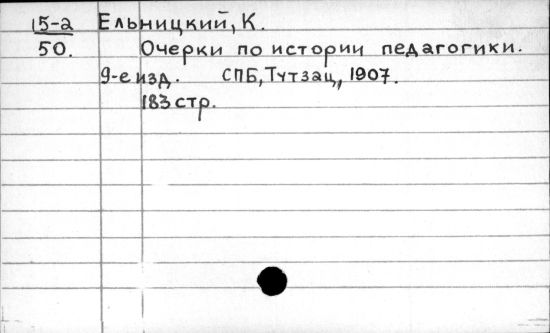 15-2 Ельницкий, К.
50. Очерки по истории педагогики.
9-е изд. СПБ, Тутзац, 1907.
183 стр.